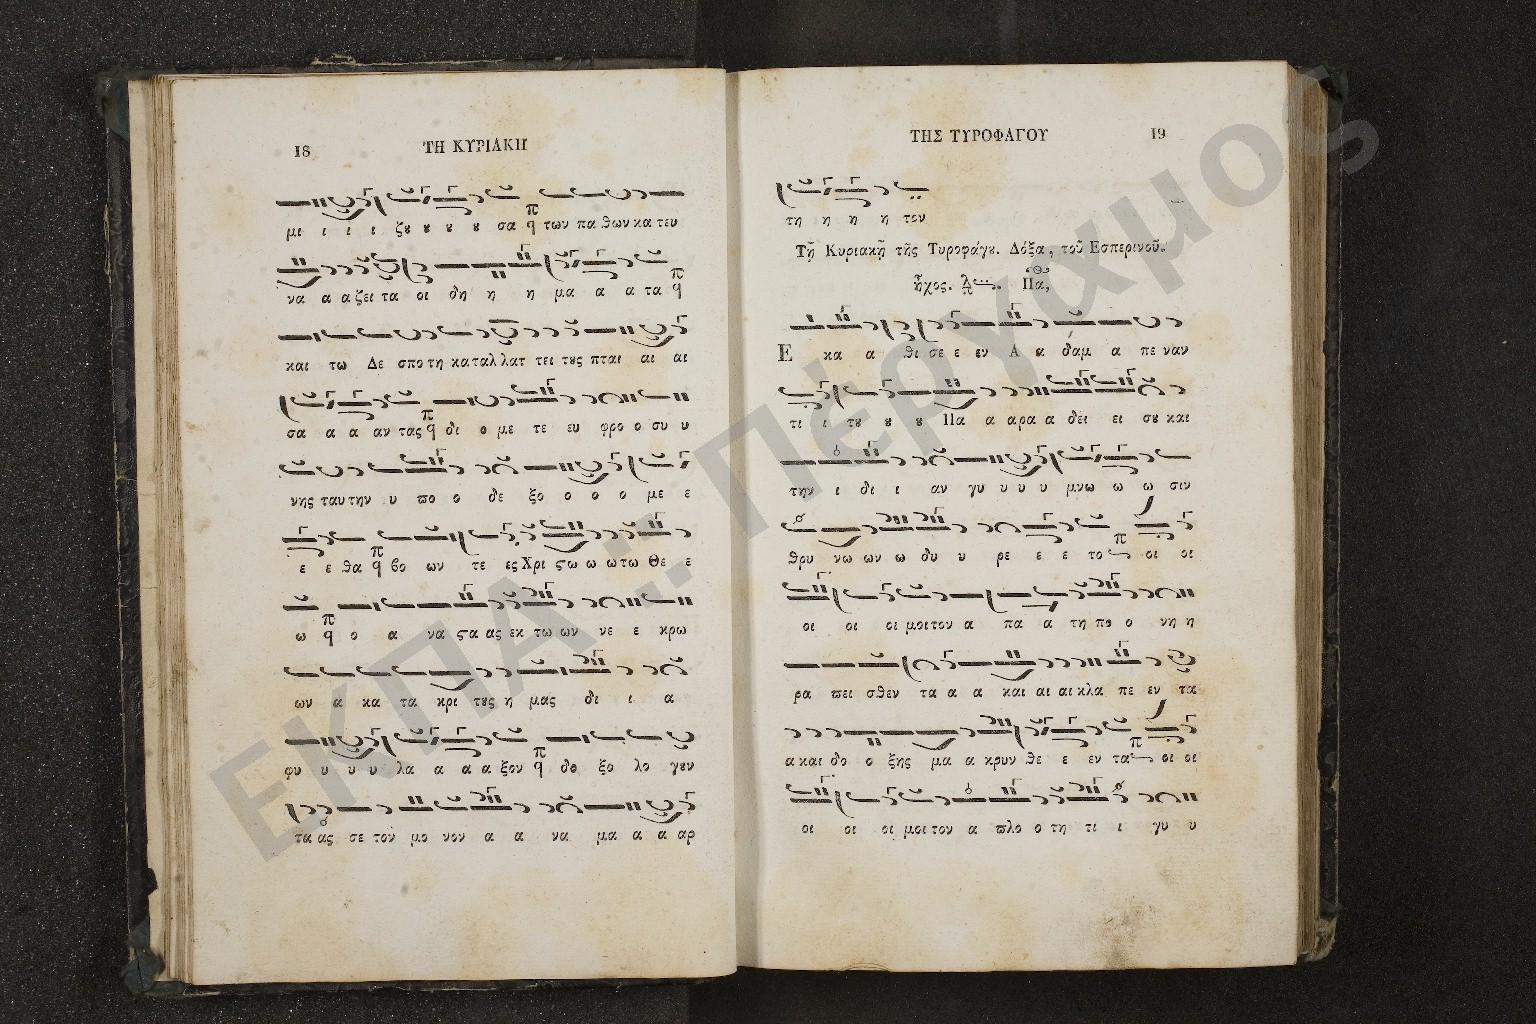 18 ΤΗ ΚΥΡΙΑΚΗ
μι ι ι ι ζȣ ȣ ȣ ȣ σα των πα θων κα τευ
να α α ζει τα οι δη η η μα α α τα
και τω Δε σπο τη κα ταλ λατ τει τȣς πται αι αι
σα α α αν τας δι ο με τε ευ φρο ο συ υ
νης ταυ την υ ϖο ο δε ξο ο ο ο με ε
ε ε θα βο ων τε ες Χρι ϛω ω ω τω Θε ε
ω ο α να ϛα ας εκ τω ων νε ε κρω
ων α κα τα κρι τȣς η μας δι ι α
φυ υ υ υ λα α α α ξον δο ξο λο γȣν
τα ας σε τον μο νον α α να μα α α αρ
ΤΗΣ ΤΥΡΟΦΑΓΟΥ 19
τη η η η τον
Τῇ Κυριακῇ τῆς Τυροφάγȣ. Δόξα, τοῦ Εσπερινοῦ.
ἦχος. Πα,
Ε κα α θι σε ε εν Α α δαμ α πε ναν
τι ι τȣ ȣ ȣ Πα α α ρα α δει ει σȣ και
την ι δι ι αν γυ υ υ υ μνω ω ω σιν
θρυ νω ων ω δυ υ ρε ε ε το οι οι
οι οι οι μοι τον α πα α τη πο ο νη η
ρα ϖει σθεν τα α α και αι αι κλα πε εν τα
α και δο ο ξης μα α κρυν θε ε εν τα οι οι
οι οι οι μοι τον α ϖλο ο τη τι ι γυ υ
ΕΚΠΑ :: Πέργαμος